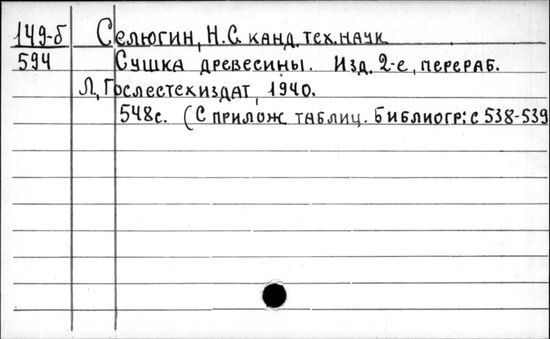 149-б Селюгин, Н.С. канд. тех. наук
594 Сушка древесины. Изд. 2-е, перераб.
Л., Гослестехиздат, 1940.
548с. (С прилож. таблиц. Библиогр: с 538-539